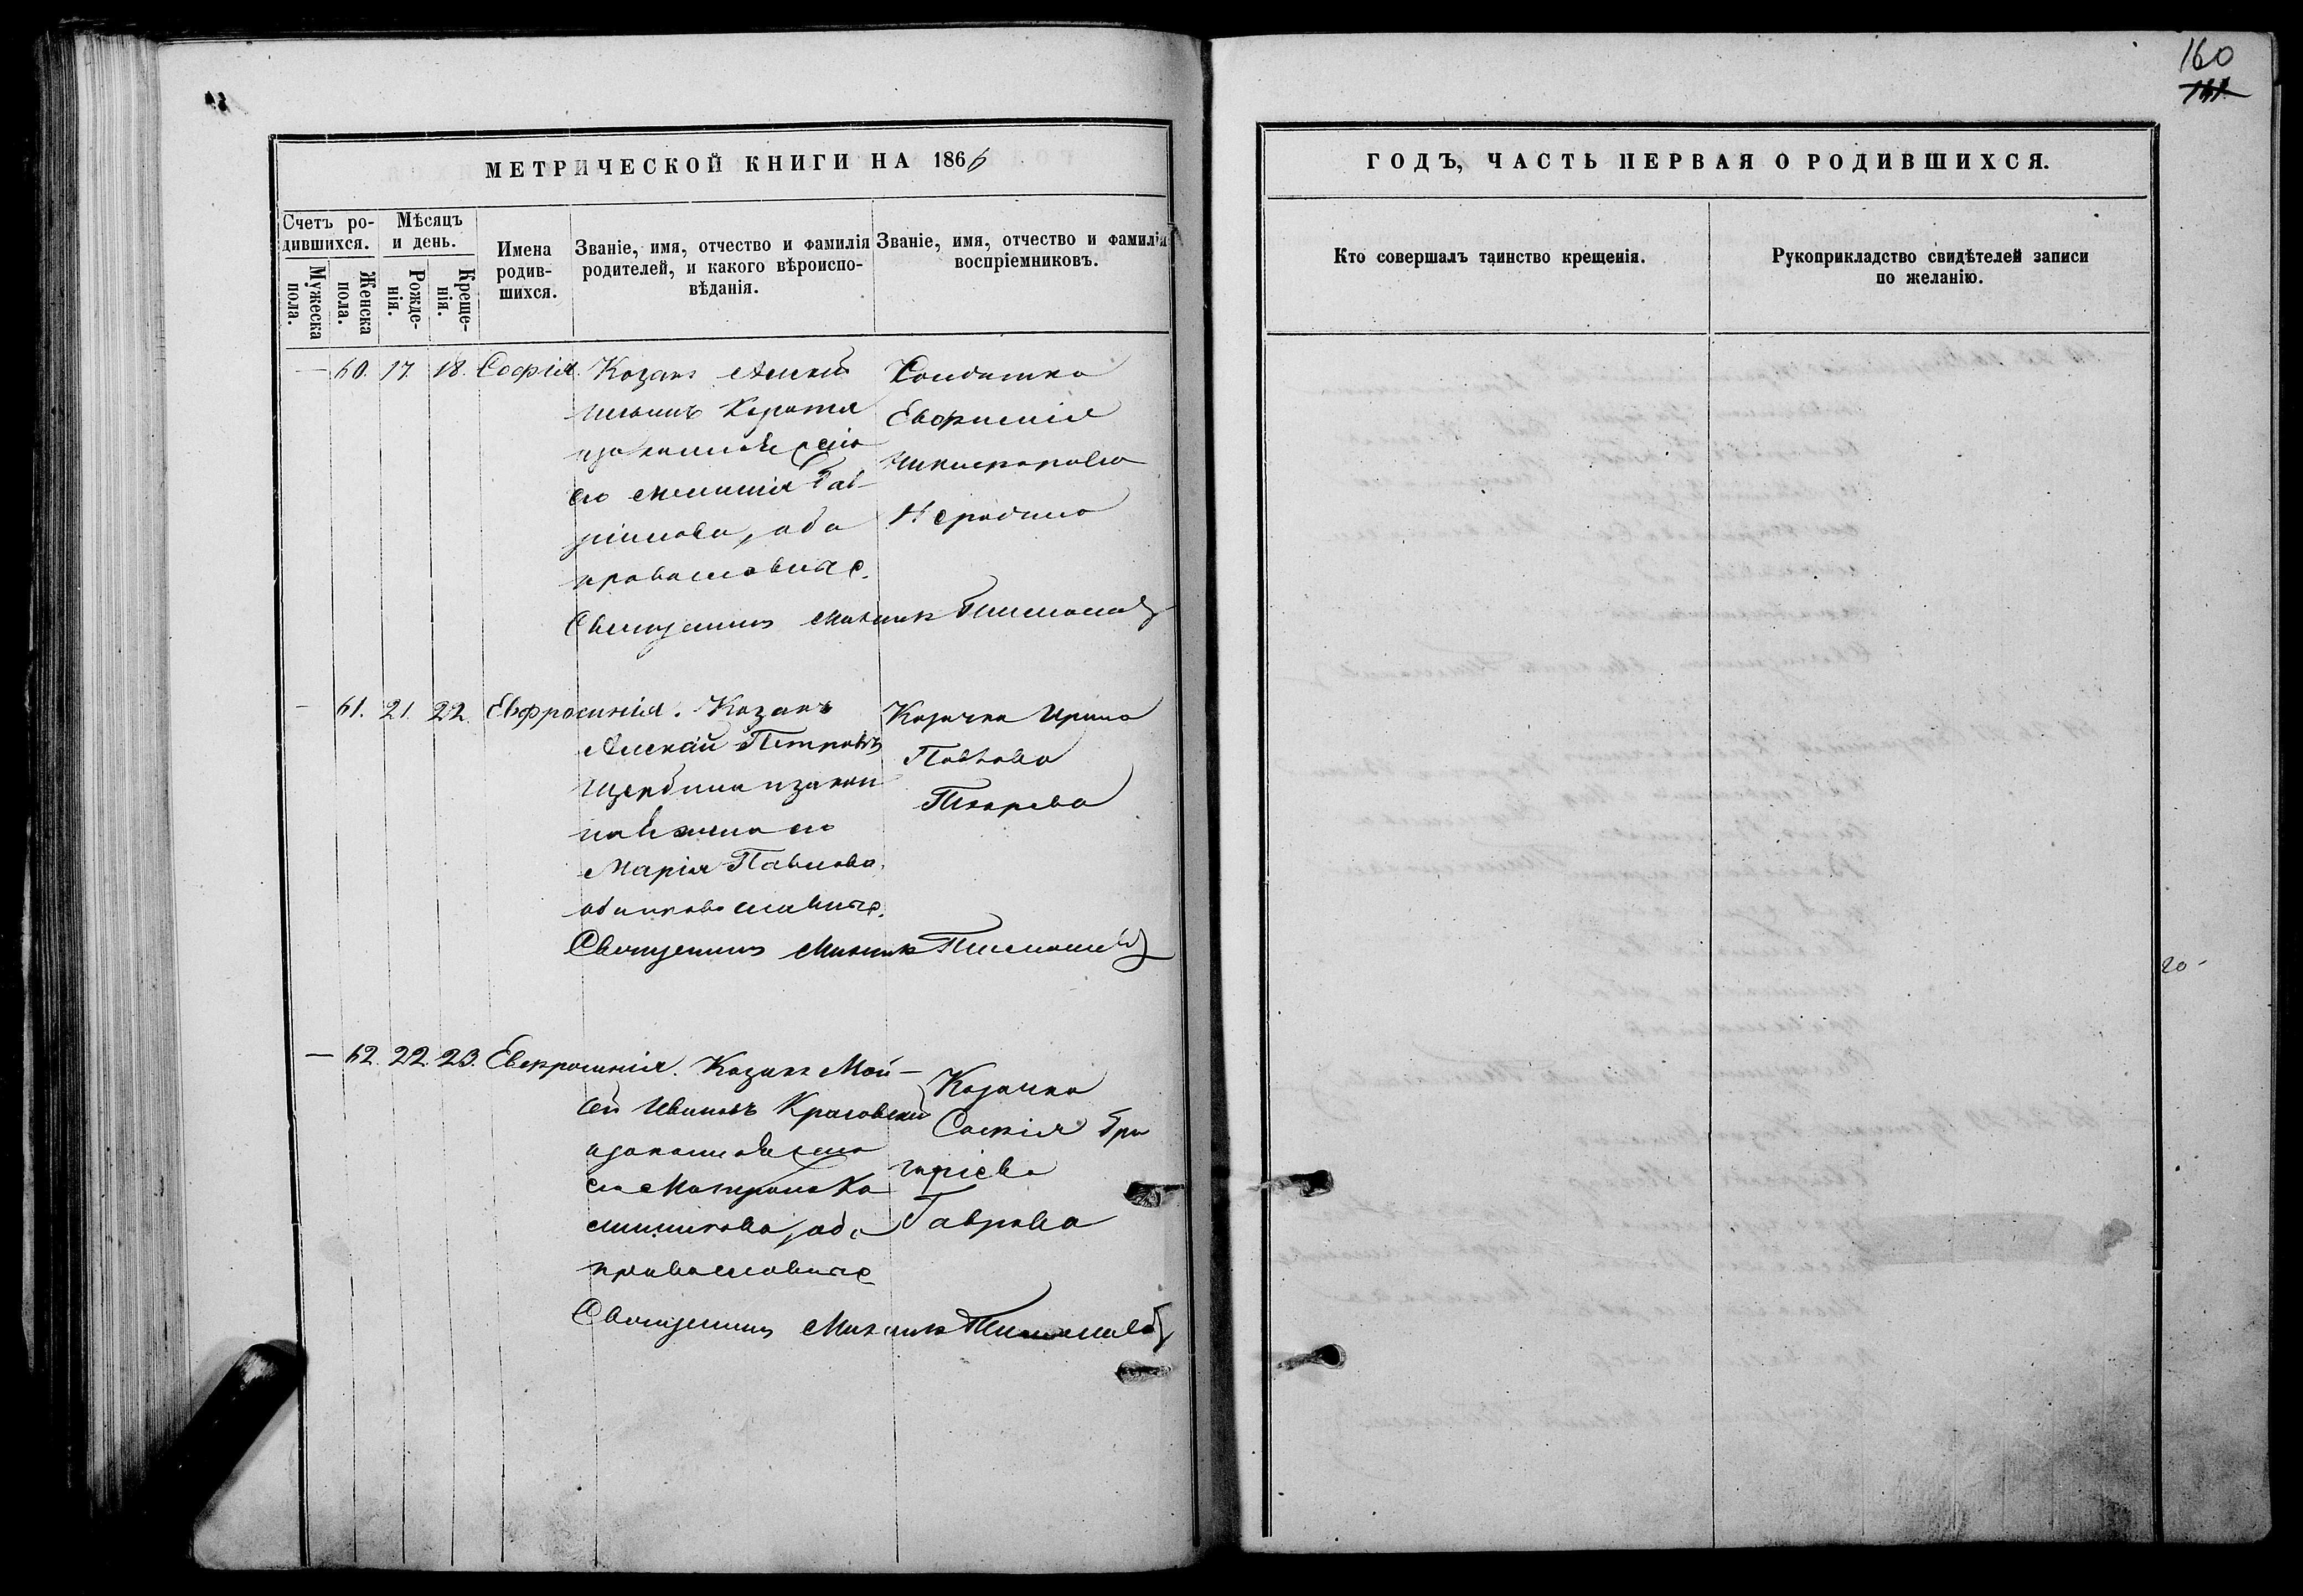 160
МЕТРИЧЕСКОЙ КНИГИ НА 1866
ГОДЪ, ЧАСТЬ ПЕРВАЯ О РОДИВШИХСЯ.
Счетъ ро-
дившихся.
Мужеска
пола.
Женска
пола.
Мѣсяцъ
и день.
Рожде-
нія.
Креще-
нія.
Имена
родив-
шихся.
Званіе, имя, отчество и фамилія
родителей, и какого вѣроиспо-
вѣданія.
Званіе, имя, отчество и фамилія
воспріемниковъ.
Кто совершалъ таинство крещенія.
Рукоприкладство свидѣтелей записи
по желанію.
— 60. 17. 18. Софія. Козакъ
и законная жена
его Гав-
ріилова, оба
православные.
Солдатка
Евфросинія
Никифорова
Священникъ Михаилъ
— 61. 21. 22. Евфросинія. Козакъ
Алексѣй Петровъ
Щербина и закон
ная жена его
Марія Павлова,
оба православные.
Козачка Ирина
Павлова
Священникъ Михаилъ
— 62. 22. 23. Евфросинія. Козакъ Мои-
сей Ивановъ
и законная жена
его Матрона Ка
оба
православные
Козачка
Софія Гри
горіева
Гаврова
Священникъ Михаилъ
20-